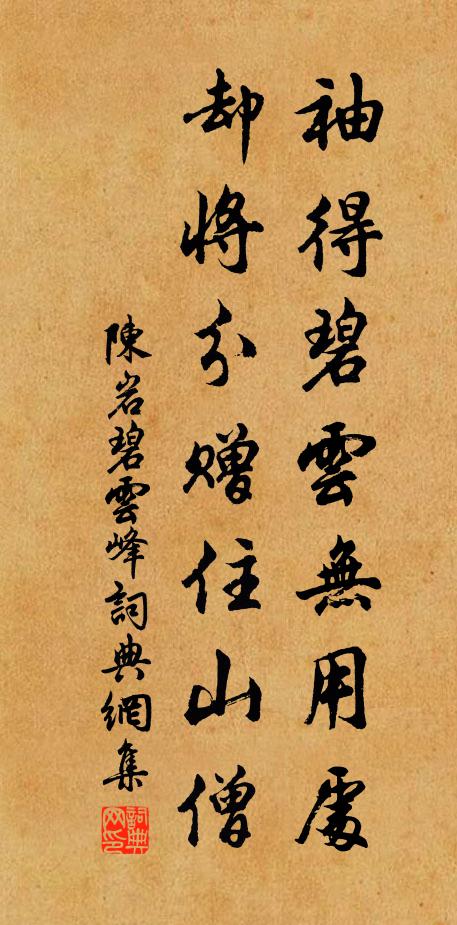 袖得碧雲無用處
却將分贈住山僧
陳岩碧雲峰詞典網集
詞典网印